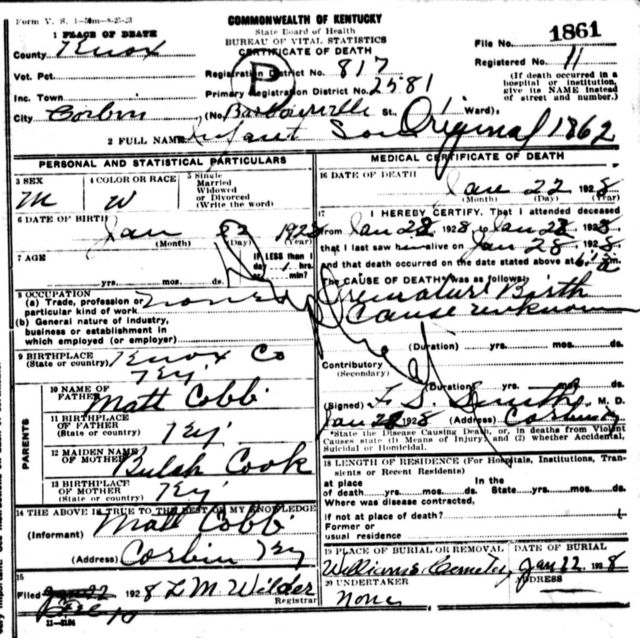 Form V. S. 1-50m-8-25-23
COMMONWEALTH OF KENTUCKY
State Board of Health
BUREAU OF VITAL STATISTICS
CERTIFICATE OF DEATH
File No. 1861
Registered No. 11
(If death occurred in a hospital or institution, give its NAME instead of street and number.)
1 PLACE OF DEATH
County Knox
Vot. Pct.
Registration District No. 817
Inc. Town
Primary Registration District No. 2581
City Corbin (No. Barbourville St., Ward)
2 FULL NAME Infant Son Original 1862
D
Duplicate
PERSONAL AND STATISTICAL PARTICULARS
3 SEX M
4 COLOR OR RACE W
5 Single Married Widowed or Divorced (Write the word)
6 DATE OF BIRTH Jan 1928
(Month) (Day) (Year)
7 AGE
yrs. mos. ds.
IF LESS than 1 day 1 hrs. or min?
8 OCCUPATION
(a) Trade, profession or particular kind of work none
(b) General nature of industry, business or establishment in which employed (or employer)
9 BIRTHPLACE (State or country) Knox Co Ky
PARENTS
10 NAME OF FATHER Matt Cobb
11 BIRTHPLACE OF FATHER (State or country) Ky
12 MAIDEN NAME OF MOTHER Bulah Cook
13 BIRTHPLACE OF MOTHER (State or country) Ky
14 THE ABOVE IS TRUE TO THE BEST OF MY KNOWLEDGE
(Informant) Matt Cobb
(Address) Corbin Ky
15
Filed 1928 L M Wilder
Registrar
11-3184
MEDICAL CERTIFICATE OF DEATH
16 DATE OF DEATH Jan 22 1928
(Month) (Day) (Year)
17 I HEREBY CERTIFY, That I attended deceased
from Jan 28 1928 to Jan 28 1928
that I last saw h alive on Jan 28 1928
and that death occurred on the date stated above at m.
The CAUSE OF DEATH* was as follows:
Premature Birth
Cause unknown
(Duration) yrs. mos. ds.
Contributory
(Secondary)
(Duration) yrs. mos. ds.
(Signed) F. S. Smith, M. D.
Jan 28 1928 (Address) Corbin Ky
*State the Disease Causing Death, or, in deaths from Violent Causes state (1) Means of Injury; and (2) whether Accidental, Suicidal or Homicidal.
18 LENGTH OF RESIDENCE (For Hospitals, Institutions, Transients or Recent Residents)
at place of death yrs. mos. ds. In the State yrs. mos. ds.
Where was disease contracted,
if not at place of death?
Former or usual residence
19 PLACE OF BURIAL OR REMOVAL Williams Cemetery
DATE OF BURIAL Jan 22 1928
20 UNDERTAKER none
ADDRESS